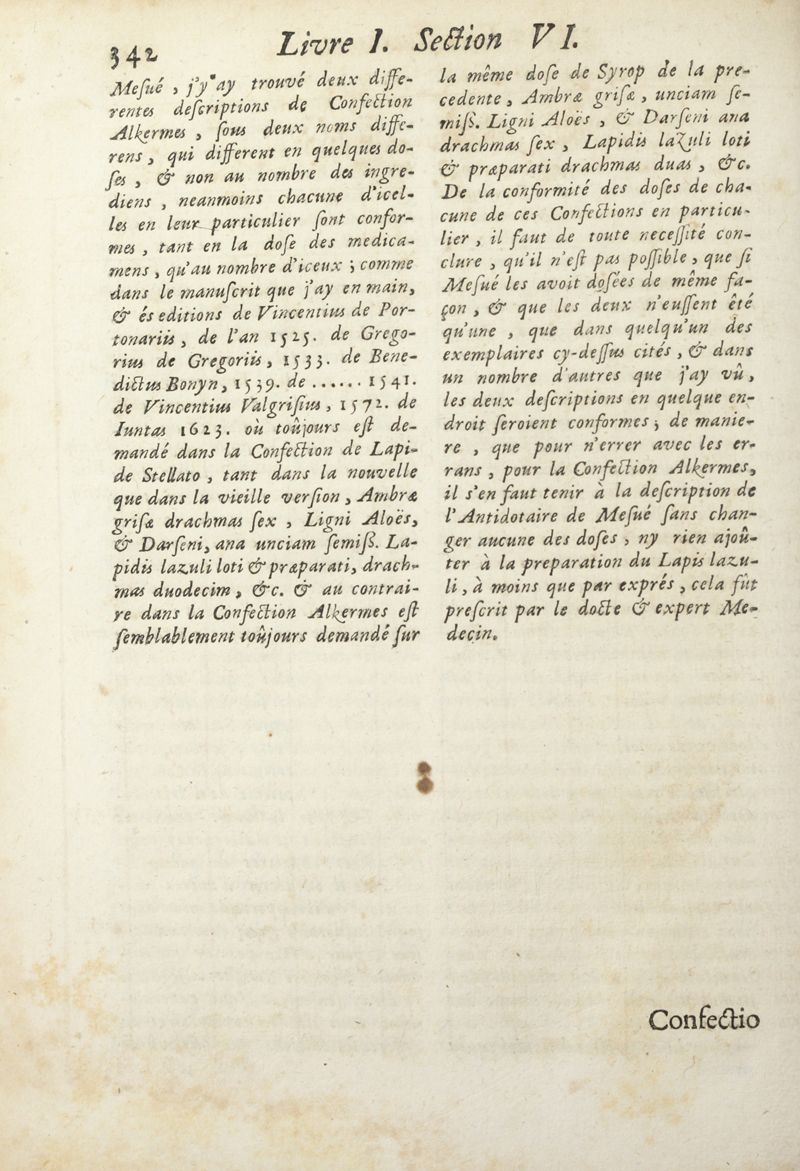 342
Livre I. Section VI.
Mesué , j'y ay trouvé deux diffe-
rentes descriptions de Confection
Alkermes , sous deux noms diffe-
rens , qui different en quelques do-
ses , & non au nombre des ingre-
diens , neanmoins chacune d'icel-
les en leur particulier sont confor-
mes , tant en la dose des medica-
mens , qu'au nombre d'iceux ; comme
dans le manuscrit que j'ay en main,
& és editions de Vincentius de Por-
tonariis , de l'an 1525. de Grego-
rius de Gregoriis , 1533. de Bene-
dictus Bonyn , 1539. de ...... 1541.
de Vincentius Valgrisius , 1572. de
Iuntas 1623. où toûjours est de-
mandé dans la Confection de Lapi-
de Stellato , tant dans la nouvelle
que dans la vieille version , Ambræ
grisæ drachmas sex , Ligni Aloës,
& Darseni, ana unciam semiss. La-
pidis lazuli loti & præparati, drach-
mas duodecim , &c. & au contrai-
re dans la Confection Alkermes est
semblablement toûjours demandé sur
la même dose de Syrop de la pre-
cedente , Ambræ grisæ , unciam se-
miss. Ligni Aloës , & Darseni ana
drachmas sex , Lapidis lazuli loti
& præparati drachmas duas , &c.
De la conformité des doses de cha-
cune de ces Confections en particu-
lier , il faut de toute necessité con-
clure , qu'il n'est pas possible , que si
Mesué les avoit dosées de même fa-
çon , & que les deux n'eussent été
qu'une , que dans quelqu'un des
exemplaires cy-dessus cités , & dans
un nombre d'autres que j'ay vû ,
les deux descriptions en quelque en-
droit seroient conformes ; de manie-
re , que pour n'errer avec les er-
rans , pour la Confection Alkermes,
il s'en faut tenir à la description de
l'Antidotaire de Mesué sans chan-
ger aucune des doses , ny rien ajoû-
ter à la preparation du Lapis lazu-
li , à moins que par exprés , cela fût
prescrit par le docte & expert Me-
decin.
Confectio